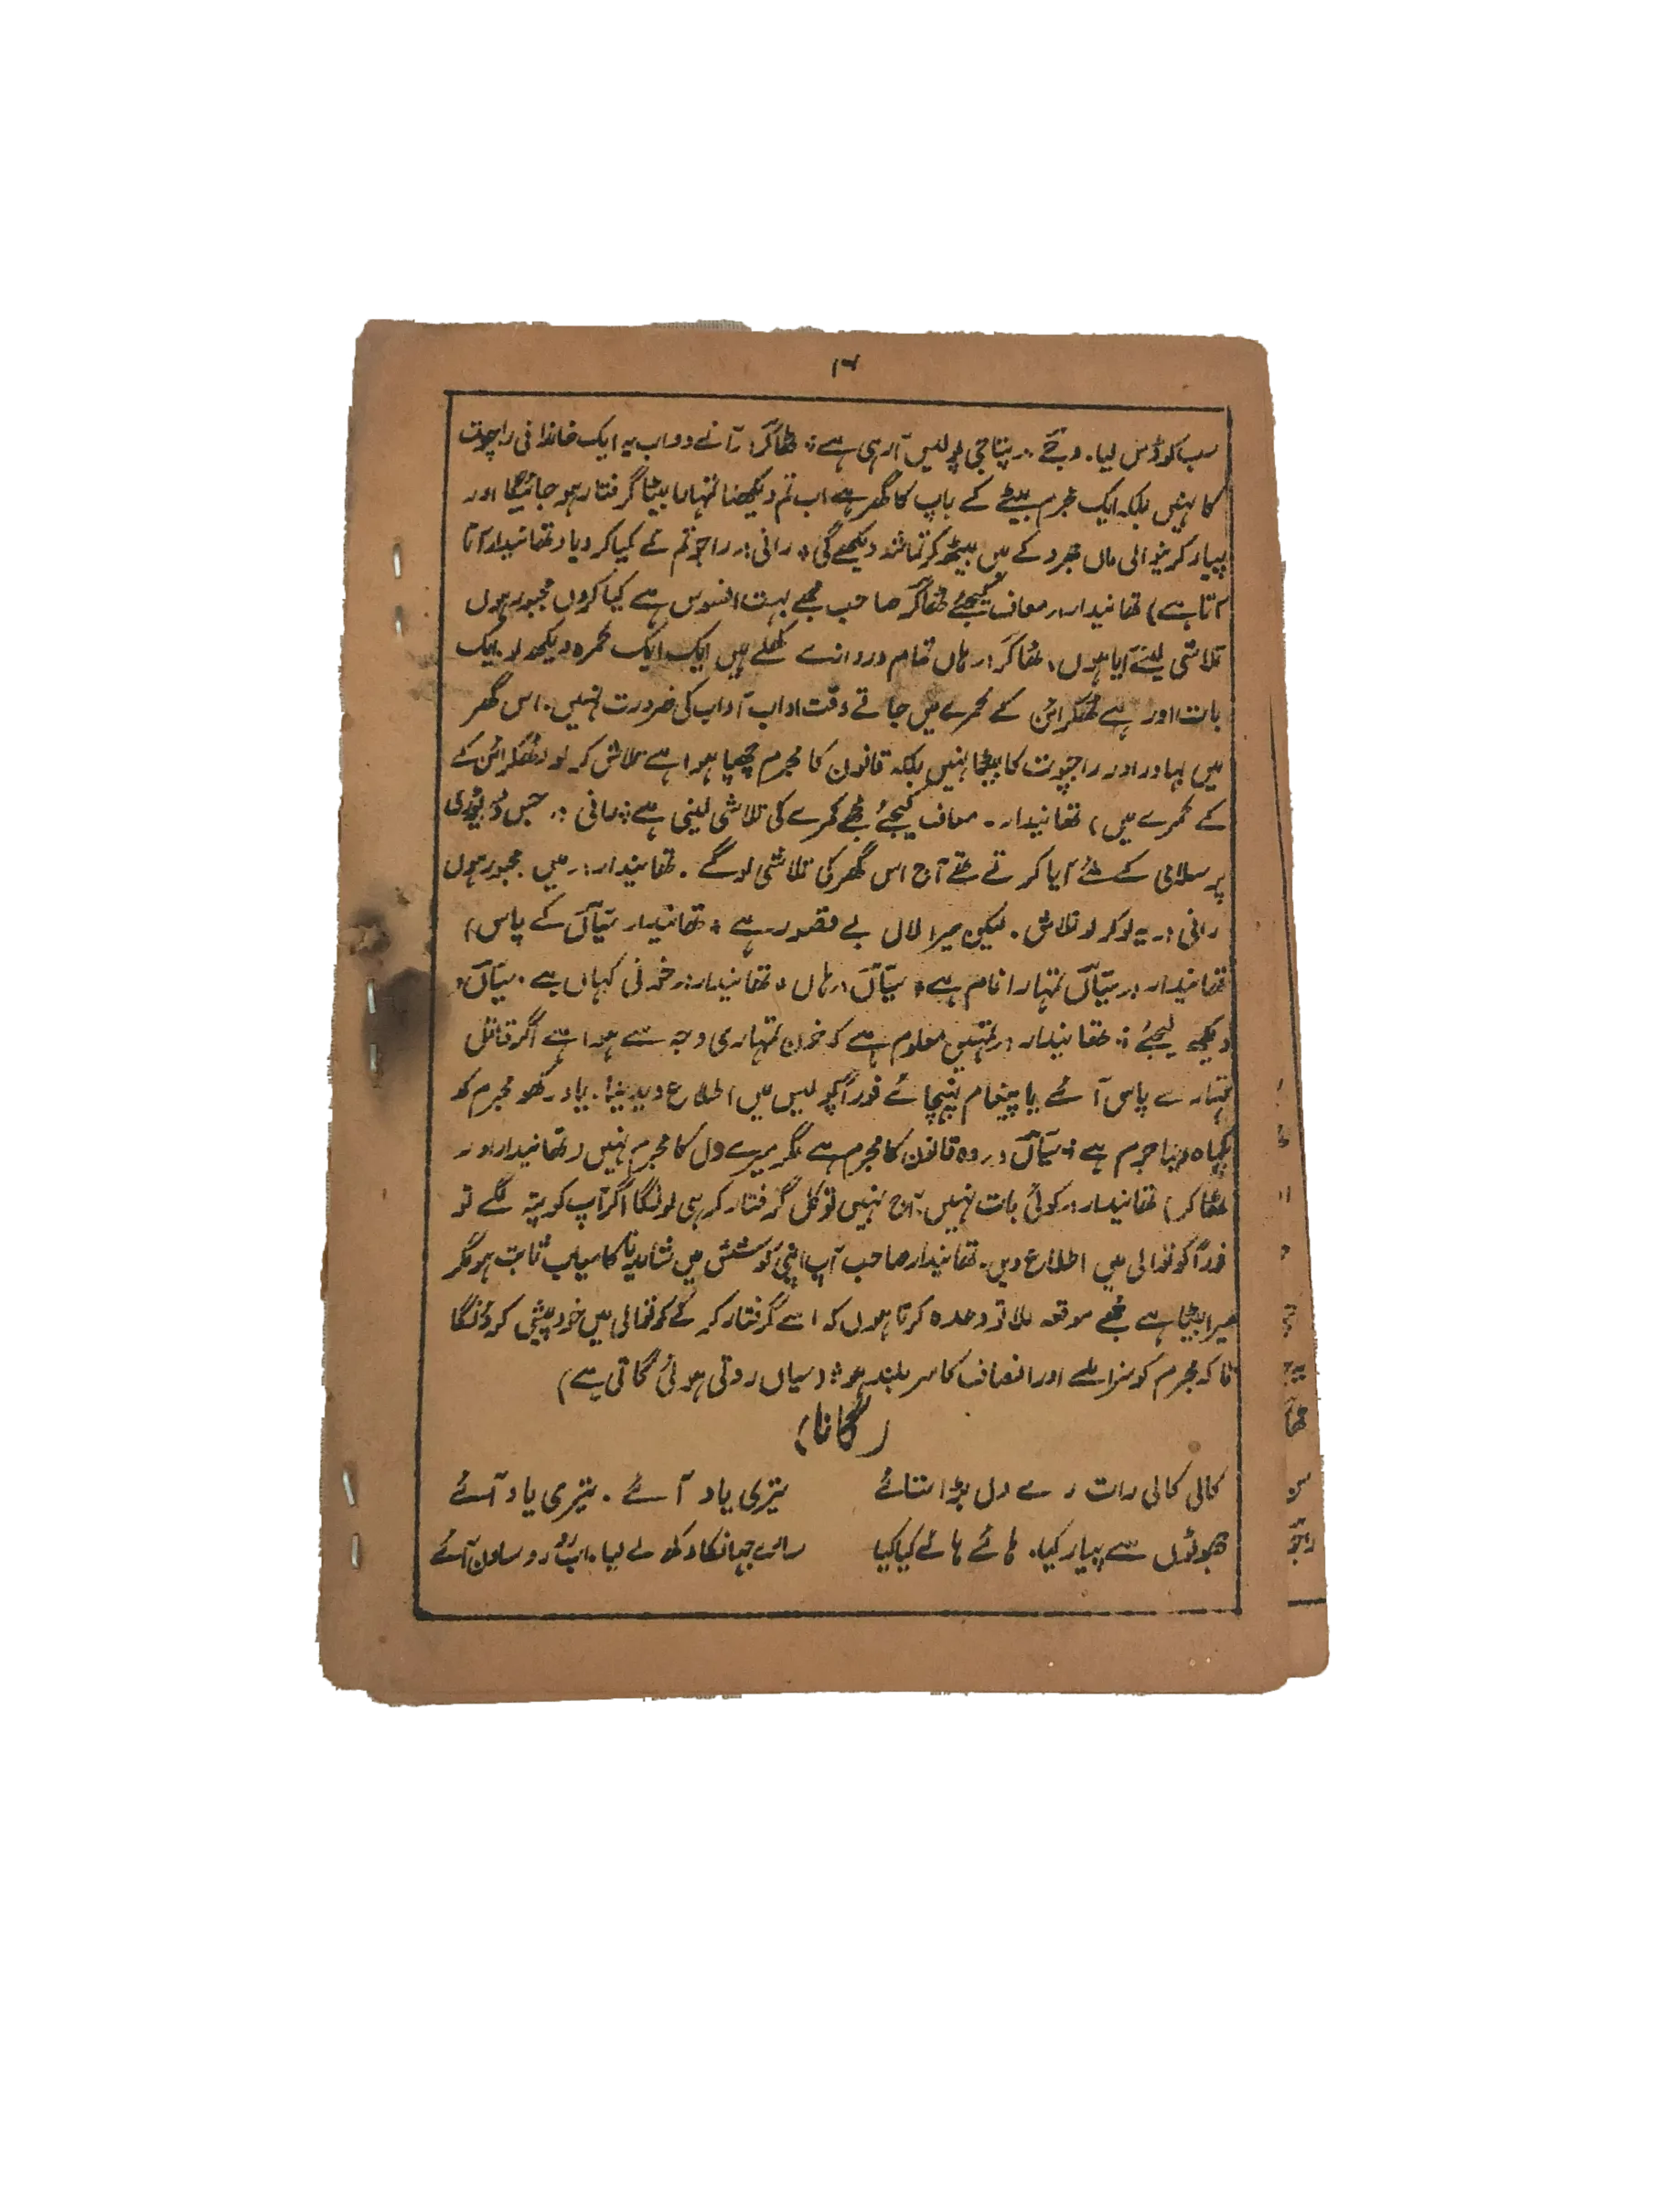 ۱۶
سب کو ڈس لیا. وجے .. پتاجی پولیس آرہی ہے ۔ ٹھاکر: آنے دو اب یہ ایک خاندانی راجپوت
کا نہیں بلکہ ایک مجرم بیٹے کے باپ کا گھر ہے اب تم دیکھنا تمہارا بیٹا گرفتار ہو جائیگا اور
پیار کرنیوالی ماں جھروکے میں بیٹھ کر تماشہ دیکھے گی ۔ رانی:۔ راجو تم نے کیا کر دیا (تھانیدار آتا
آتا ہے) تھانیدار:۔ معاف کیجئے ٹھاکر صاحب مجھے بہت افسوس ہے کیا کروں مجبور ہوں
تلاشی لینے آیا ہوں، ٹھاکر:۔ ہاں تمام دروازے کھلے ہیں ایک ایک کمرہ دیکھ لو. ایک
بات اور ہے ٹھکرائن کے کمرے میں جاتے وقت اداب آداب کی ضرورت نہیں. اس گھر
میں بہادر اور راجپوت کا بیٹا نہیں بلکہ قانون کا مجرم چھپا ہوا ہے تلاش کر لو (ٹھکرائن کے
کے کمرے میں) تھانیدار ۔ معاف کیجئے مجھے کمرے کی تلاشی لینی ہے ۔ رانی :۔ جس ڈیوڑی
پر سلامی کے لئے آیا کرتے تھے آج اس گھر کی تلاشی لوگے . تھانیدار:۔ میں مجبور ہوں
رانی :۔ یہ لو کر لو تلاش . لیکن میرا لال بے قصور ہے ۔ (تھانیدار سیاں کے پاس)
تھانیدار :۔ سیاں تمہارا نام ہے ۔ سیاں :۔ ہاں ۔ تھانیدار:۔ خونی کہاں ہے . سیاں ۔
دیکھ لیجئے ۔ تھانیدار :۔ تمہیں معلوم ہے کہ خون تمہاری وجہ سے ہوا ہے اگر قاتل
تمہارے پاس آئے یا پیغام پہنچائے فوراً پولیس میں اطلاع دیدینا . یاد رکھو مجرم کو
پناہ دینا جرم ہے ۔ سیاں :۔ وہ قانون کا مجرم ہے مگر میرے دل کا مجرم نہیں (تھانیدار اور
ٹھاکر) تھانیدار:۔ کوئی بات نہیں. آج نہیں تو کل گرفتار کر ہی لونگا اگر آپ کو پتہ لگے تو
فوراً کوتوالی میں اطلاع دیں . تھانیدار صاحب آپ اپنی کوشش میں شاید نا کامیاب ثابت ہو مگر
میرا بیٹا ہے مجھے موقعہ ملا تو وعدہ کرتا ہوں کہ اسے گرفتار کر کے کوتوالی میں خود پیش کر دونگا
تاکہ مجرم کو سزا ملے اور انصاف کا سر بلند ہو ۔ (سیاں روتی ہوئی گاتی ہے)
(گانا)
کالی کالی رات رے دل بڑا ستائے تیری یاد آئے . تیری یاد آئے
جھوٹوں سے پیار کیا. ہائے ہائے کیا کیا دکھ لے لیا. اب رو رو ساون آئے